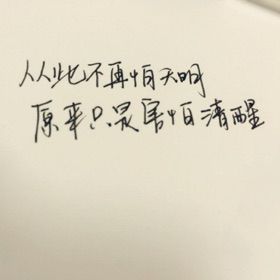 从此不再怕天明
原来只是害怕清醒